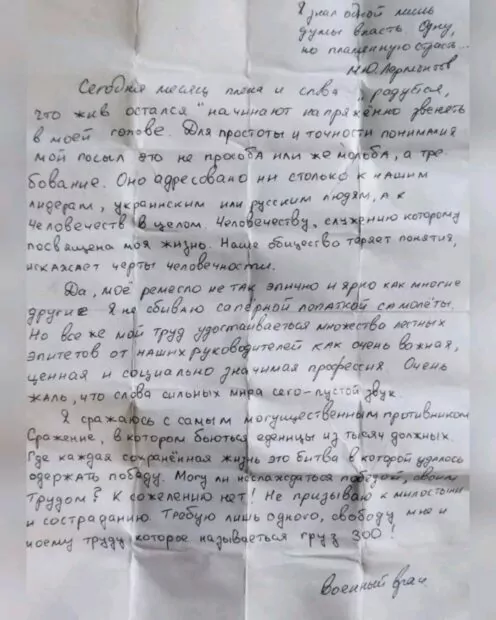 Я знал одной лишь
думы власть одну,
но пламенную страсть...
М.Ю. Лермонтов
Сегодня месяц плена и слова "радуйся,
что жив остался" начинают напряжённо звенеть
в моей голове. Для простоты и точности понимания
мой посыл это не просьба или же мольба, а тре-
бование. Оно адресовано ни столько к нашим
лидерам, украинским или русским людям, а к
Человечеств в целом. Человечеству, служению которому
посвящена моя жизнь. Наше общество теряет понятия,
искажает черты человечности.
Да, моё ремесло не так эпично и ярко как многие
другие я не сбиваю сапёрной лопаткой самолёты.
Но все же мой труд удостаиваеться множества лестных
эпитетов от наших руководителей как очень важная,
ценная и социально значимая профессия. Очень
жаль, что слова сильных мира сего-пустой звук.
Я сражаюсь с самым могущественным противником
Сражение, в котором бьються еденицы из тысяч должных.
Где каждая сохранённая жизнь это битва в которой удалось
одержать победу. Могу ли наслаждаться победой, своим
трудом? К сожелению нет! Не призываю к милостыни
и состраданию. Требую лишь одного, свободу мне и
моему труду которое называеться груз 300!
Военный врач